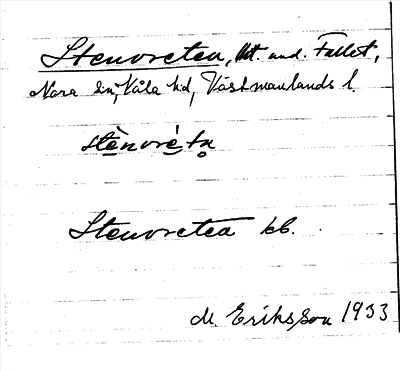 Stenvretea, Ut. und. Fallet,
Nora sn, Våla hd, Västmanlands l.
stènvré tn̥
Stenvretea kb.
M. Eriksson 1933